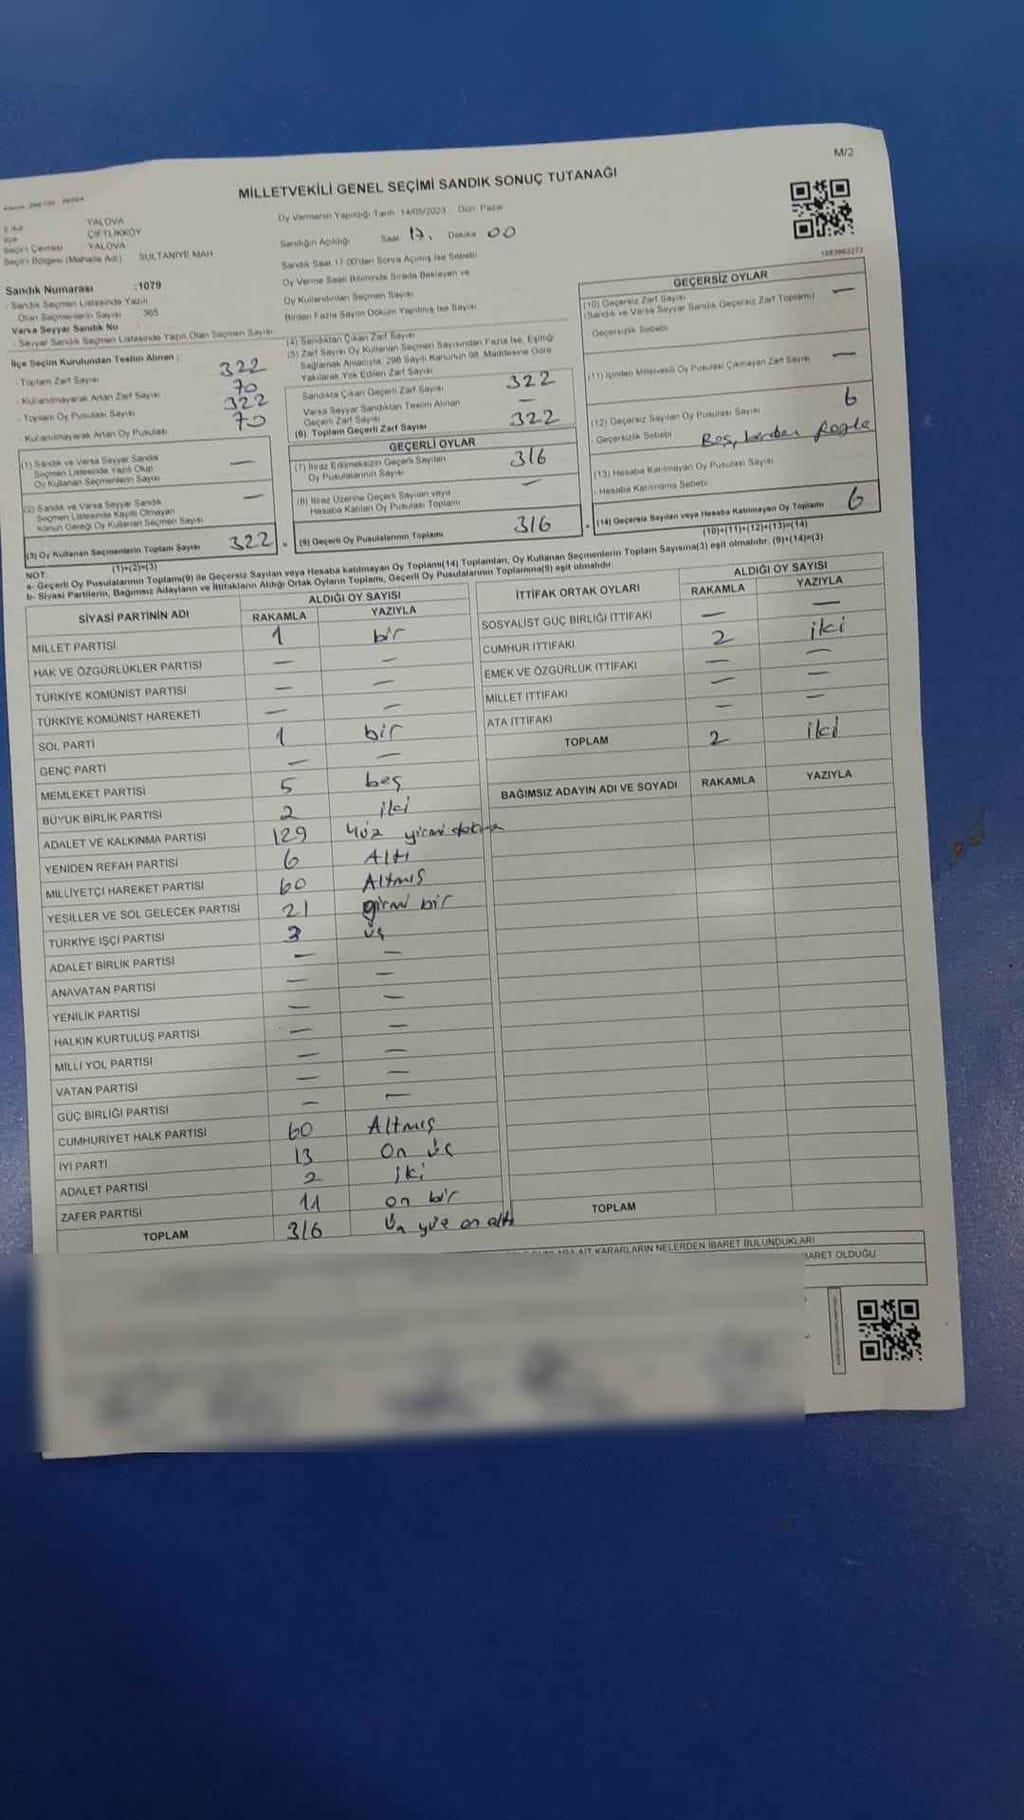 M/2
MİLLETVEKİLİ GENEL SEÇİMİ SANDIK SONUÇ TUTANAĞI
YALOVA
ÇİFTLİKKÖY
Seçim Çevresi YALOVA
Seçim Bölgesi (Mahalle Adı) SULTANİYE MAH
Sandık Numarası :1079
- Sandık Seçmen Listesinde Yazılı
Olan Seçmenlerin Sayısı 365
Varsa Seyyar Sandık No
- Seyyar Sandık Seçmen Listesinde Yazılı Olan Seçmen Sayısı
Oy Vermenin Yapıldığı Tarih 14/05/2023 Gün: Pazar
Sandığın Açıldığı Saat 17. Dakika 00
Sandık Saat 17:00'den Sonra Açılmış İse Sebebi
Oy Verme Saati Bitiminde Sırada Bekleyen ve
Oy Kullandırılan Seçmen Sayısı
Birden Fazla Sayım Döküm Yapılmış İse Sayısı
1083862272
İlçe Seçim Kurulundan Teslim Alınan :
- Toplam Zarf Sayısı 322
- Kullanılmayarak Artan Zarf Sayısı 70
- Toplam Oy Pusulası Sayısı 322
- Kullanılmayarak Artan Oy Pusulası 70
(1) Sandık ve Varsa Seyyar Sandık
Seçmen Listesinde Yazılı Olup
Oy Kullanan Seçmenlerin Sayısı —
(2) Sandık ve Varsa Seyyar Sandık
Seçmen Listesinde Kayıtlı Olmayan
Kanun Gereği Oy Kullanan Seçmen Sayısı —
(3) Oy Kullanan Seçmenlerin Toplam Sayısı 322
(1)+(2)=(3)
(4) Sandıktan Çıkan Zarf Sayısı
(5) Zarf Sayısı Oy Kullanan Seçmen Sayısından Fazla İse, Eşitliği
Sağlamak Amacıyla, 298 Sayılı Kanunun 98. Maddesine Göre
Yakılarak Yok Edilen Zarf Sayısı
Sandıkta Çıkan Geçerli Zarf Sayısı 322
Varsa Seyyar Sandıktan Teslim Alınan
Geçerli Zarf Sayısı —
(6) Toplam Geçerli Zarf Sayısı 322
GEÇERLİ OYLAR
(7) İtiraz Edilmeksizin Geçerli Sayılan
Oy Pusulalarının Sayısı 316
(8) İtiraz Üzerine Geçerli Sayılan veya
Hesaba Katılan Oy Pusulası Toplamı —
= (9) Geçerli Oy Pusulalarının Toplamı 316
GEÇERSİZ OYLAR
(10) Geçersiz Zarf Sayısı
(Sandık ve Varsa Seyyar Sandık Geçersiz Zarf Toplamı) —
Geçersizlik Sebebi
(11) İçinden Milletvekili Oy Pusulası Çıkmayan Zarf Sayısı —
(12) Geçersiz Sayılan Oy Pusulası Sayısı 6
Geçersizlik Sebebi Boş, birden fazla
(13) Hesaba Katılmayan Oy Pusulası Sayısı
- Hesaba Katılmama Sebebi
+ (14) Geçersiz Sayılan veya Hesaba Katılmayan Oy Toplamı 6
(10)+(11)+(12)+(13)=(14)
NOT:
a- Geçerli Oy Pusulalarının Toplamı(9) ile Geçersiz Sayılan veya Hesaba katılmayan Oy Toplamı(14) Toplamları, Oy Kullanan Seçmenlerin Toplam Sayısına(3) eşit olmalıdır. (9)+(14)=(3)
b- Siyasi Partilerin, Bağımsız Adayların ve İttifakların Aldığı Ortak Oyların Toplamı, Geçerli Oy Pusulalarının Toplamına(9) eşit olmalıdır.
SİYASİ PARTİNİN ADI ALDIĞI OY SAYISI
RAKAMLA YAZIYLA
MİLLET PARTİSİ 1 bir
HAK VE ÖZGÜRLÜKLER PARTİSİ — —
TÜRKİYE KOMÜNİST PARTİSİ — —
TÜRKİYE KOMÜNİST HAREKETİ — —
SOL PARTİ 1 bir
GENÇ PARTİ — —
MEMLEKET PARTİSİ 5 beş
BÜYÜK BİRLİK PARTİSİ 2 iki
ADALET VE KALKINMA PARTİSİ 129 yüz yirmi dokuz
YENİDEN REFAH PARTİSİ 6 Altı
MİLLİYETÇİ HAREKET PARTİSİ 60 Altmış
YEŞİLLER VE SOL GELECEK PARTİSİ 21 yirmi bir
TÜRKİYE İŞÇİ PARTİSİ 3 üç
ADALET BİRLİK PARTİSİ — —
ANAVATAN PARTİSİ — —
YENİLİK PARTİSİ — —
HALKIN KURTULUŞ PARTİSİ — —
MİLLİ YOL PARTİSİ — —
VATAN PARTİSİ — —
GÜÇ BİRLİĞİ PARTİSİ — —
CUMHURİYET HALK PARTİSİ 60 Altmış
İYİ PARTİ 13 On üç
ADALET PARTİSİ 2 iki
ZAFER PARTİSİ 11 on bir
TOPLAM 316 Üç yüz on altı
İTTİFAK ORTAK OYLARI ALDIĞI OY SAYISI
RAKAMLA YAZIYLA
SOSYALİST GÜÇ BİRLİĞİ İTTİFAKI — —
CUMHUR İTTİFAKI 2 iki
EMEK VE ÖZGÜRLÜK İTTİFAKI — —
MİLLET İTTİFAKI — —
ATA İTTİFAKI — —
TOPLAM 2 iki
BAĞIMSIZ ADAYIN ADI VE SOYADI RAKAMLA YAZIYLA
TOPLAM
AİT KARARLARIN NELERDEN İBARET BULUNDUKLARI
BARET OLDUĞU